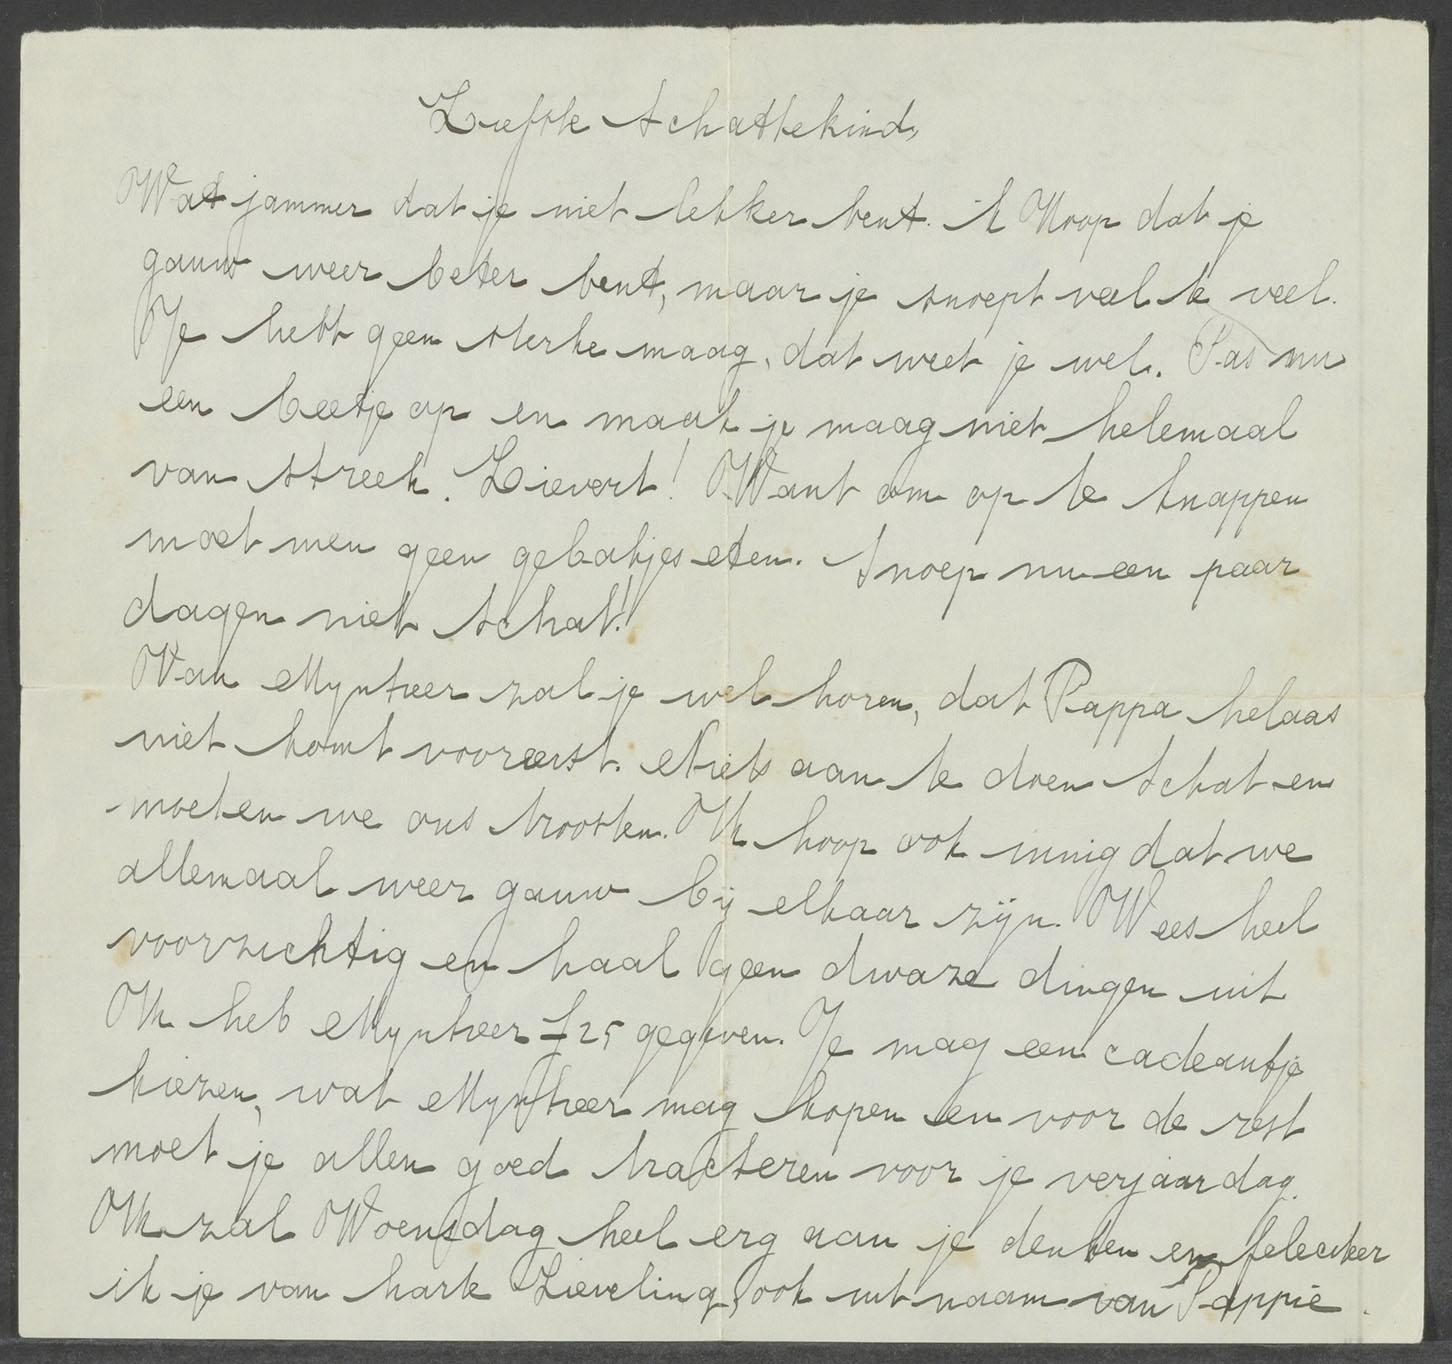 Liefste schattekind,
Wat jammer dat je niet lekker bent. ik Hoop dat je
gauw weer beter bent, maar je snoept veel te veel.
Je hebt geen sterke maag, dat weet je wel. Pas nu
een beetje op en maak je maag niet helemaal
van streek. Lievert! Want om op te knappen
moet men geen gebakjes eten. Snoep nu een paar
dagen niet schat!
Van Mynheer zal je wel horen, dat Pappa helaas
niet komt vooreerst. Niets aan te doen schat en
moeten we ons troosten. Ik hoop ook innig dat we
allemaal weer gauw bij elkaar zijn. Wees heel
voorzichtig en haal geen dwaze dingen uit
Ik heb Mynheer f 25 gegeven. Je mag een cadeautje
kiezen, wat Mynheer mag kopen en voor de rest
moet je allen goed tracteren voor je verjaardag.
Ik zal Woensdag heel erg aan je denken en feleciteer
ik je van harte Lieveling, ook uit naam van Pappie.